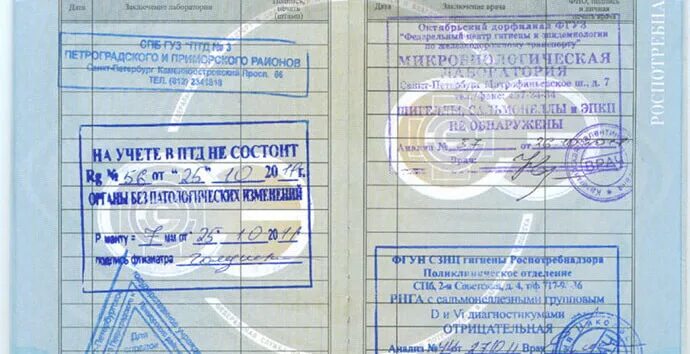 Дата
Заключение лаборатории
СПБ ГУЗ "ПТД № 3"
ПЕТРОГРАДСКОГО И ПРИМОРСКОГО РАЙОНОВ
Санкт-Петербург Каменноостровский Просп. 66
ТЕЛ. (812) 2341818
НА УЧЕТЕ В ПТД НЕ СОСТОИТ
Rg № 56 от "25" 10 201
ОРГАНЫ БЕЗ ПАТОЛОГИЧЕСКИХ ИЗМЕНЕНИЙ
Р манту = 7 мм от 25 10 201
подпись фтизиатра
Для
Дата
Заключение врача
и личная
печать врача
Октябрьский дорфилиал ФГУЗ
"Федеральный центр гигиены и эпидемиологии
по железнодорожному транспорту"
МИКРОБИОЛОГИЧЕСКАЯ
ЛАБОРАТОРИЯ
Санкт-Петербург Митрофаньевское ш., д. 7
тел./факс:
ШИГЕЛЛЫ, САЛЬМОНЕЛЛЫ и ЭПКП
НЕ ОБНАРУЖЕНЫ
Анализ № 57 от 26
Врач
ВРАЧ
РОСПОТРЕБНА
ФГУН СЗНЦ гигиены Роспотребнадзора
Поликлиническое отделение
СПб, 2-я Советская, д. 4, т/ф 717-9 -36
РНГА с сальмонеллезными групповым
D и Vi диагностикумами
ОТРИЦАТЕЛЬНАЯ
Анализ № 44 от 27.10.11 Врач